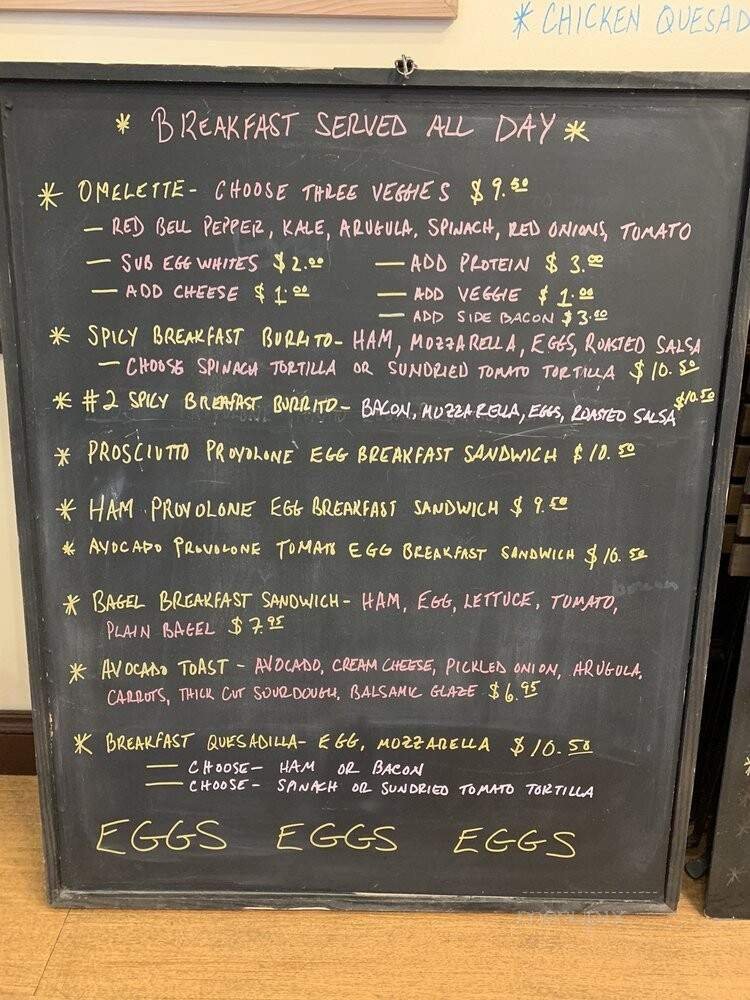 * CHICKEN QUESAD
* BREAKFAST SERVED ALL DAY *
* OMELETTE - CHOOSE THREE VEGGIES $9.50
— RED BELL PEPPER, KALE, ARUGULA, SPINACH, RED ONIONS, TOMATO
— SUB EGG WHITES $2.00 — ADD PROTEIN $3.00
— ADD CHEESE $1.00 — ADD VEGGIE $1.00
— ADD SIDE BACON $3.00
* SPICY BREAKFAST BURRITO - HAM, MOZZARELLA, EGGS, ROASTED SALSA
— CHOOSE SPINACH TORTILLA OR SUNDRIED TOMATO TORTILLA $10.50
* #2 SPICY BREAFAST BURRITO - BACON, MOZZARELLA, EGGS, ROASTED SALSA $10.50
* PROSCIUTTO PROVOLONE EGG BREAKFAST SANDWICH $10.50
* HAM PROVOLONE EGG BREAKFAST SANDWICH $9.50
* AVOCADO PROVOLONE TOMATO EGG BREAKFAST SANDWICH $10.50
* BAGEL BREAKFAST SANDWICH - HAM, EGG, LETTUCE, TOMATO,
PLAIN BAGEL $7.95
* AVOCADO TOAST - AVOCADO, CREAM CHEESE, PICKLED ONION, ARUGULA,
CARROTS, THICK CUT SOURDOUGH, BALSAMIC GLAZE $6.95
* BREAKFAST QUESADILLA - EGG, MOZZARELLA $10.50
— CHOOSE - HAM OR BACON
— CHOOSE - SPINACH OR SUNDRIED TOMATO TORTILLA
EGGS EGGS EGGS